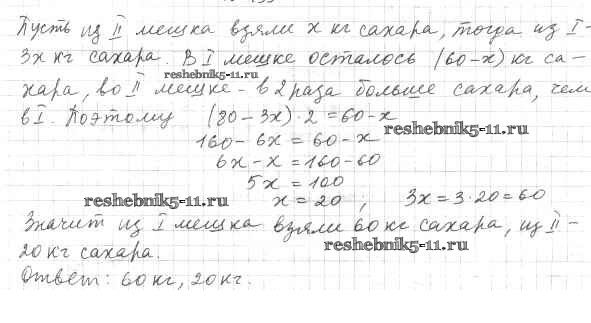 Пусть из II мешка взяли x кг сахара, тогда из I-
3x кг сахара. В I мешке осталось (60-x) кг са-
reshebnik5-11.ru
хара, во II мешке - в 2 раза больше сахара, чем
в I. Поэтому (80-3x)·2=60-x
reshebnik5-11.ru
160-6x=60-x
6x-x=160-60
5x=100
reshebnik5-11.ru
x=20, 3x=3·20=60
Значит из I мешка взяли 60 кг сахара, из II-
reshebnik5-11.ru
20 кг сахара.
Ответ: 60 кг, 20 кг.